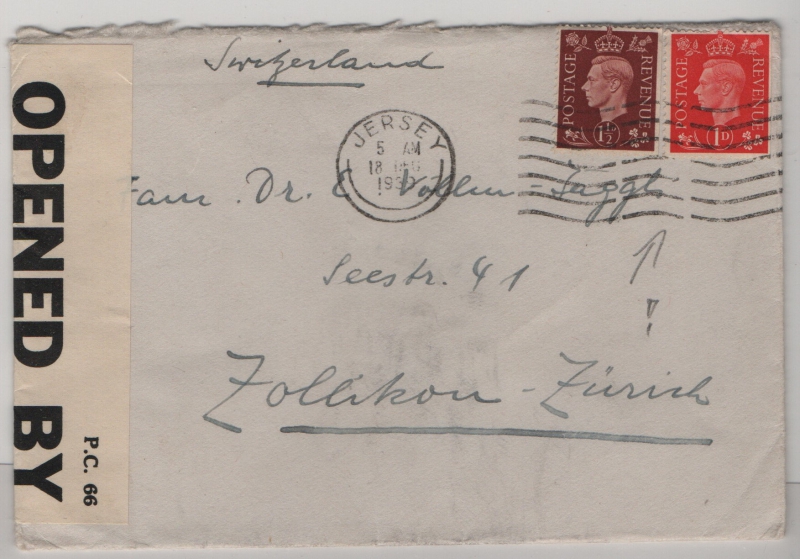 OPENED BY
P.C. 66
Switzerland
POSTAGE REVENUE
1½D
POSTAGE REVENUE
1D
JERSEY
5 AM
18 DEC
1939
Fam. Dr. E. -Jäggi
Seestr. 41
Zollikon-Zürich